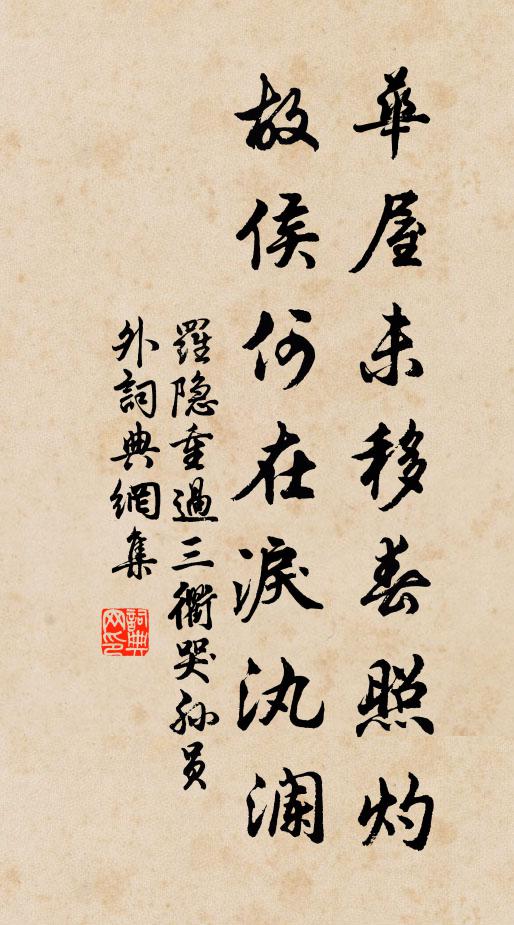 華屋未移春照灼
故侯何在淚汍瀾
羅隐重過三衢哭孙员
外詞典網集
詞典网印